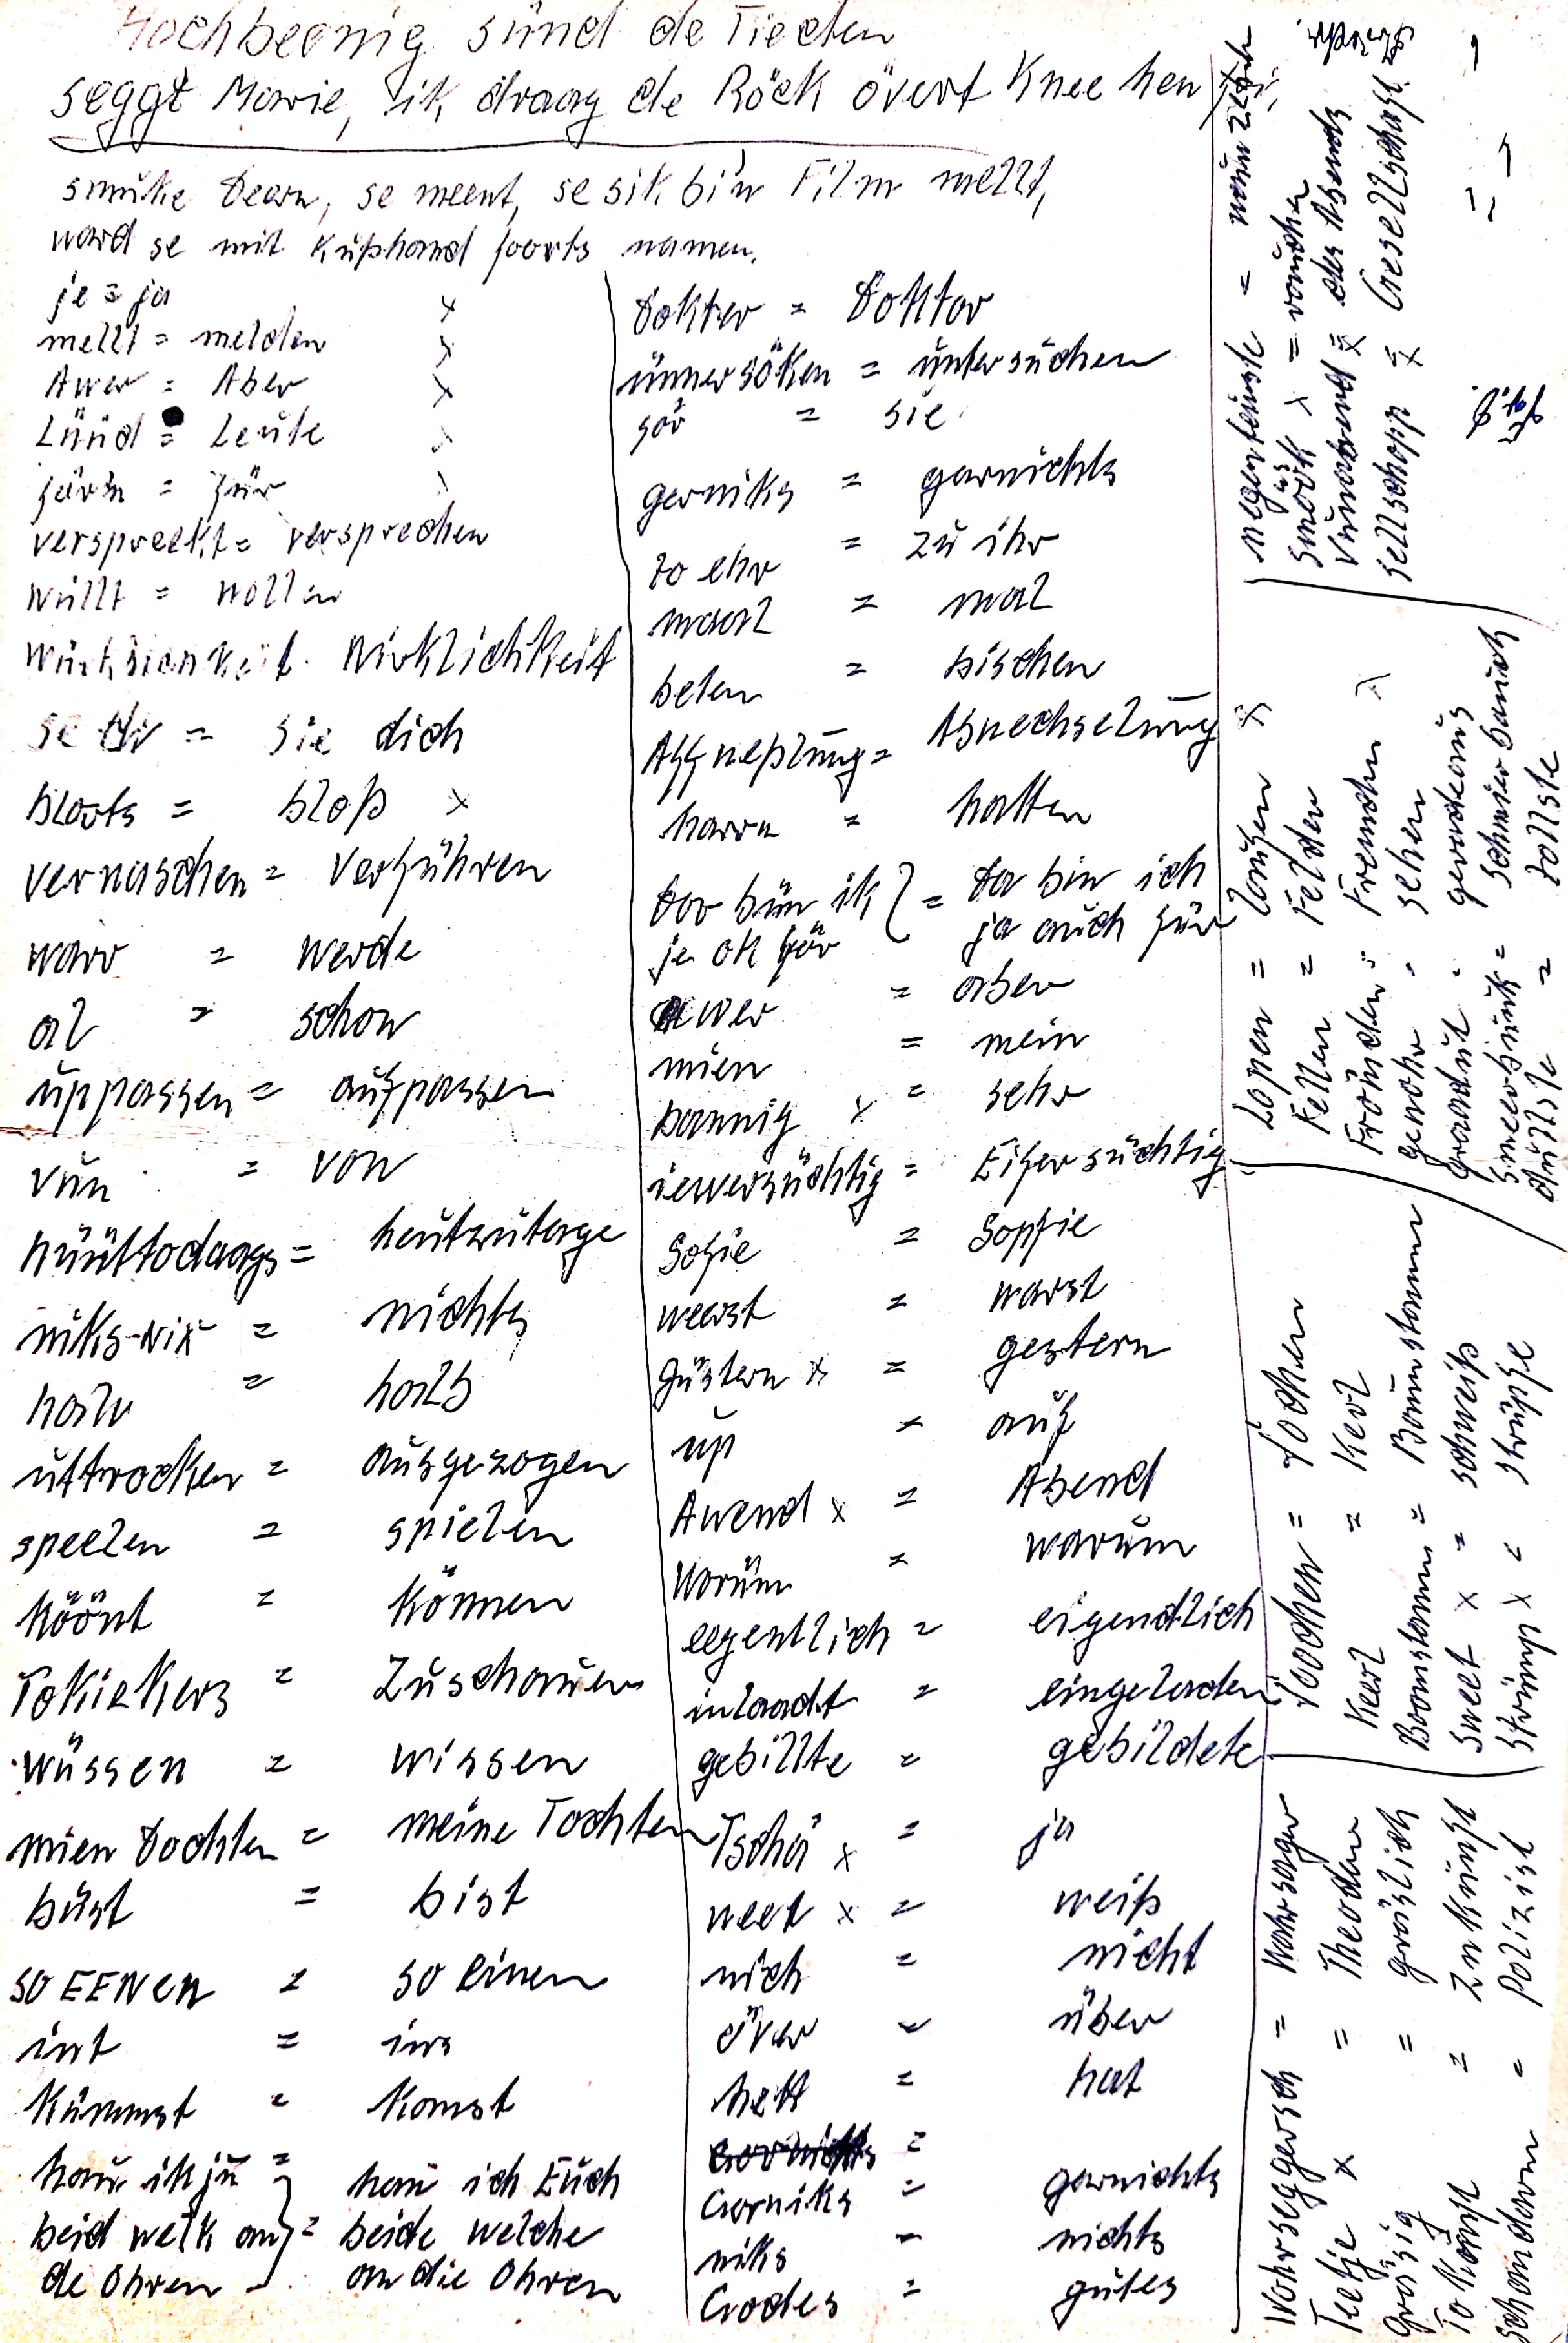 Hochbeenig sünd de Tieden
seggt Marie, ik draag de Röck övert Knee hen
smuke Deern, se meent, se sik bi'n Film mellt,
ward se mit Kußhand foorts namen.
je = ja x
mellt = melden x
Awer = Aber x
Lüüd = Leute x
för'n = für x
verspreekt = versprechen
wüllt = wollen
Wirklichkeit
se di = sie dich
bloots = bloß x
vernaschen = verführen
warr = werde
al = schon
uppassen = aufpassen
vun = von
hüültodaags = heutzutage
niks-nix = nichts
halv = halb
uttrocken = ausgezogen
speelen = spielen
köönt = können
Tokiekers = Zuschauer
wüssen = wissen
mien Dochter = meine Tochter
büst = bist
so EENen = so einen
int = ins
kümmst = komst
hau ik ju = hau ich Euch
beid welk an = beide welche
de Ohren an die Ohren
Dokter = Doktor
ünnersöken = untersuchen
sör = sie
gerniks = garnichts
to ehr = zu ihr
maal = mal
beten = bischen
Affweßlung = Abwechselung
harrn = hatten
Dor bün ik = Da bin ich
je ok för ja auch für
awer = aber
mien = mein
bannig x = sehr
iewersüchtig = Eifersüchtig
Sofie = Sopfie
weerst = warst
güstern x = gestern
up = auf
Awend x = Abend
Worüm = warum
eegentlich = eigendlich
inlaadt = eingeladen
gebillte = gebildete
Tschä x = ja
weet x = weiß
nich = nicht
över = über
hett = hat
=
Gorniks = garnichts
niks = nichts
Godes = gutes
negenteinste = neunzehn
smöök x = rauchen
Vunabend x = der Abend
sellschopp x = Gesellschaft
Lopen = laufen x
Fellen = Felder
Frömden = Fremden x
sehen
graadut = geradeaus
Smeerbuuk = schmierbauch
düllste = tollste
Joochen = Jochen
Keerl = Kerl
Boomstamm = Baumstamm
Sweet x = schweiß
Strümp x = strüpfe
Wohrseggersch = Wahrsager
Teetje x = Theodor
gräsig = gräslich
To kunft = Zukunft
schandarm = Polizist